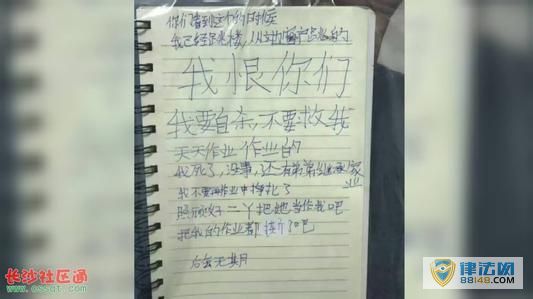 你们看到这个的时候
我已经跳楼,从这边窗户跳的
我恨你们
我要自杀,不要救我
天天作业作业的
我死了,没事,还有弟弟继承家业
我不要再作业中挣扎了
照顾好二丫把她当作我吧
把我的作业都撕了吧
后会无期
长沙社区通
www.cssqt.com
律法网
88148.com